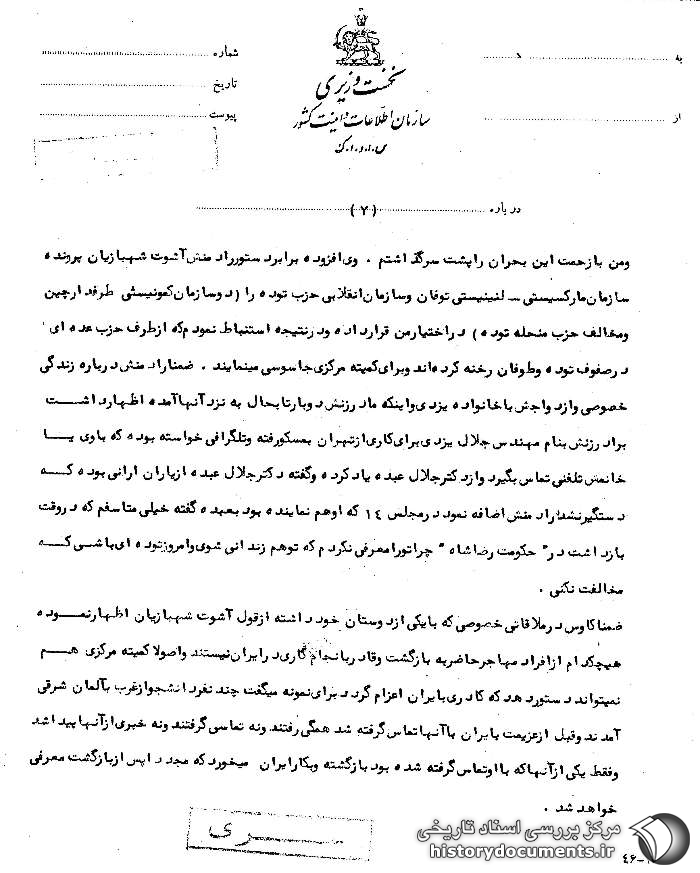 شماره
به
نخست وزیری
تاریخ
سازمان اطلاعات و امنیت کشور
از
پیوست
س.ا.و.ا.ک
درباره (۷)
ومن بازحمت این بحران راپشت سرگذاشتم . وی‌افزوده برابردستورراد منش‌آشوت شهبازیان پرونده
سازمان‌مارکسیستی ـ لنینیستی توفان وسازمان‌انقلابی حزب توده را (دوسازمان‌کمونیستی طرفدارچین
ومخالف حزب منحله توده) دراختیارمن قرارداده ودرنتیجه استنباط نمودم‌که ازطرف حزب عده ای
درصفوف توده وطوفان رخنه کرده‌اند وبرای‌کمیته مرکزی‌جاسوسی مینمایند . ضمناراد منش درباره زندگی
خصوصی وازدواجش باخانواده یزدی‌واینکه مادرزنش دوبارتابحال به نزدآنهاآمده اظهارداشت
برادرزنش بنام مهندس جلال یزدی‌برای‌کاری‌ازتهران بمسکورفته وتلگرافی خواسته بوده که باوی یا
خانمش تلفنی تماس بگیرد وازدکترجلال عبده یادکرده وگفته دکترجلال عبده ازیاران ارانی بوده که
دستگیرنشدرادمنش اضافه نمود درمجلس ۱۴ که اوهم نماینده بود بعبده گفته خیلی متاسفم که دروقت
بازداشت در" حکومت رضاشاه " چراتورامعرفی نکردم که توهم زندانی شوی‌وامروزتوده ای‌باشی‌که
مخالفت نکنی .
ضمناکاوس درملاقاتی خصوصی که بایکی ازدوستان خود داشته ازقول آشوت شهبازیان اظهارنموده
هیچکدام ازافراد مهاجرحاضربه بازگشت وقادربانجام کاری‌درایران‌نیستند واصولا کمیته مرکزی هم
نمیتواند دستوردهدکه کادری‌بایران اعزام گردد برای‌نمونه میگفت چند نفردانشجوازغرب بآلمان شرقی
آمدند وقبل ازعزیمت بایران باآنهاتماس‌گرفته شد همگی‌رفتند ونه تماسی‌گرفتند ونه خبری‌ازآنهاپیداشد
وفقط یکی ازآنهاکه بااوتماس‌گرفته شده بود بازگشته وبکارایران میخورد که مجددا پس ازبازگشت معرفی
خواهد شد .
سری
مرکز بررسی اسناد تاریخی
historydocuments.ir